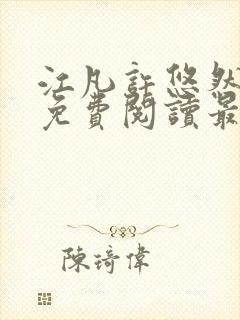 江凡許悠然
免費閱讀最
陳琦偉